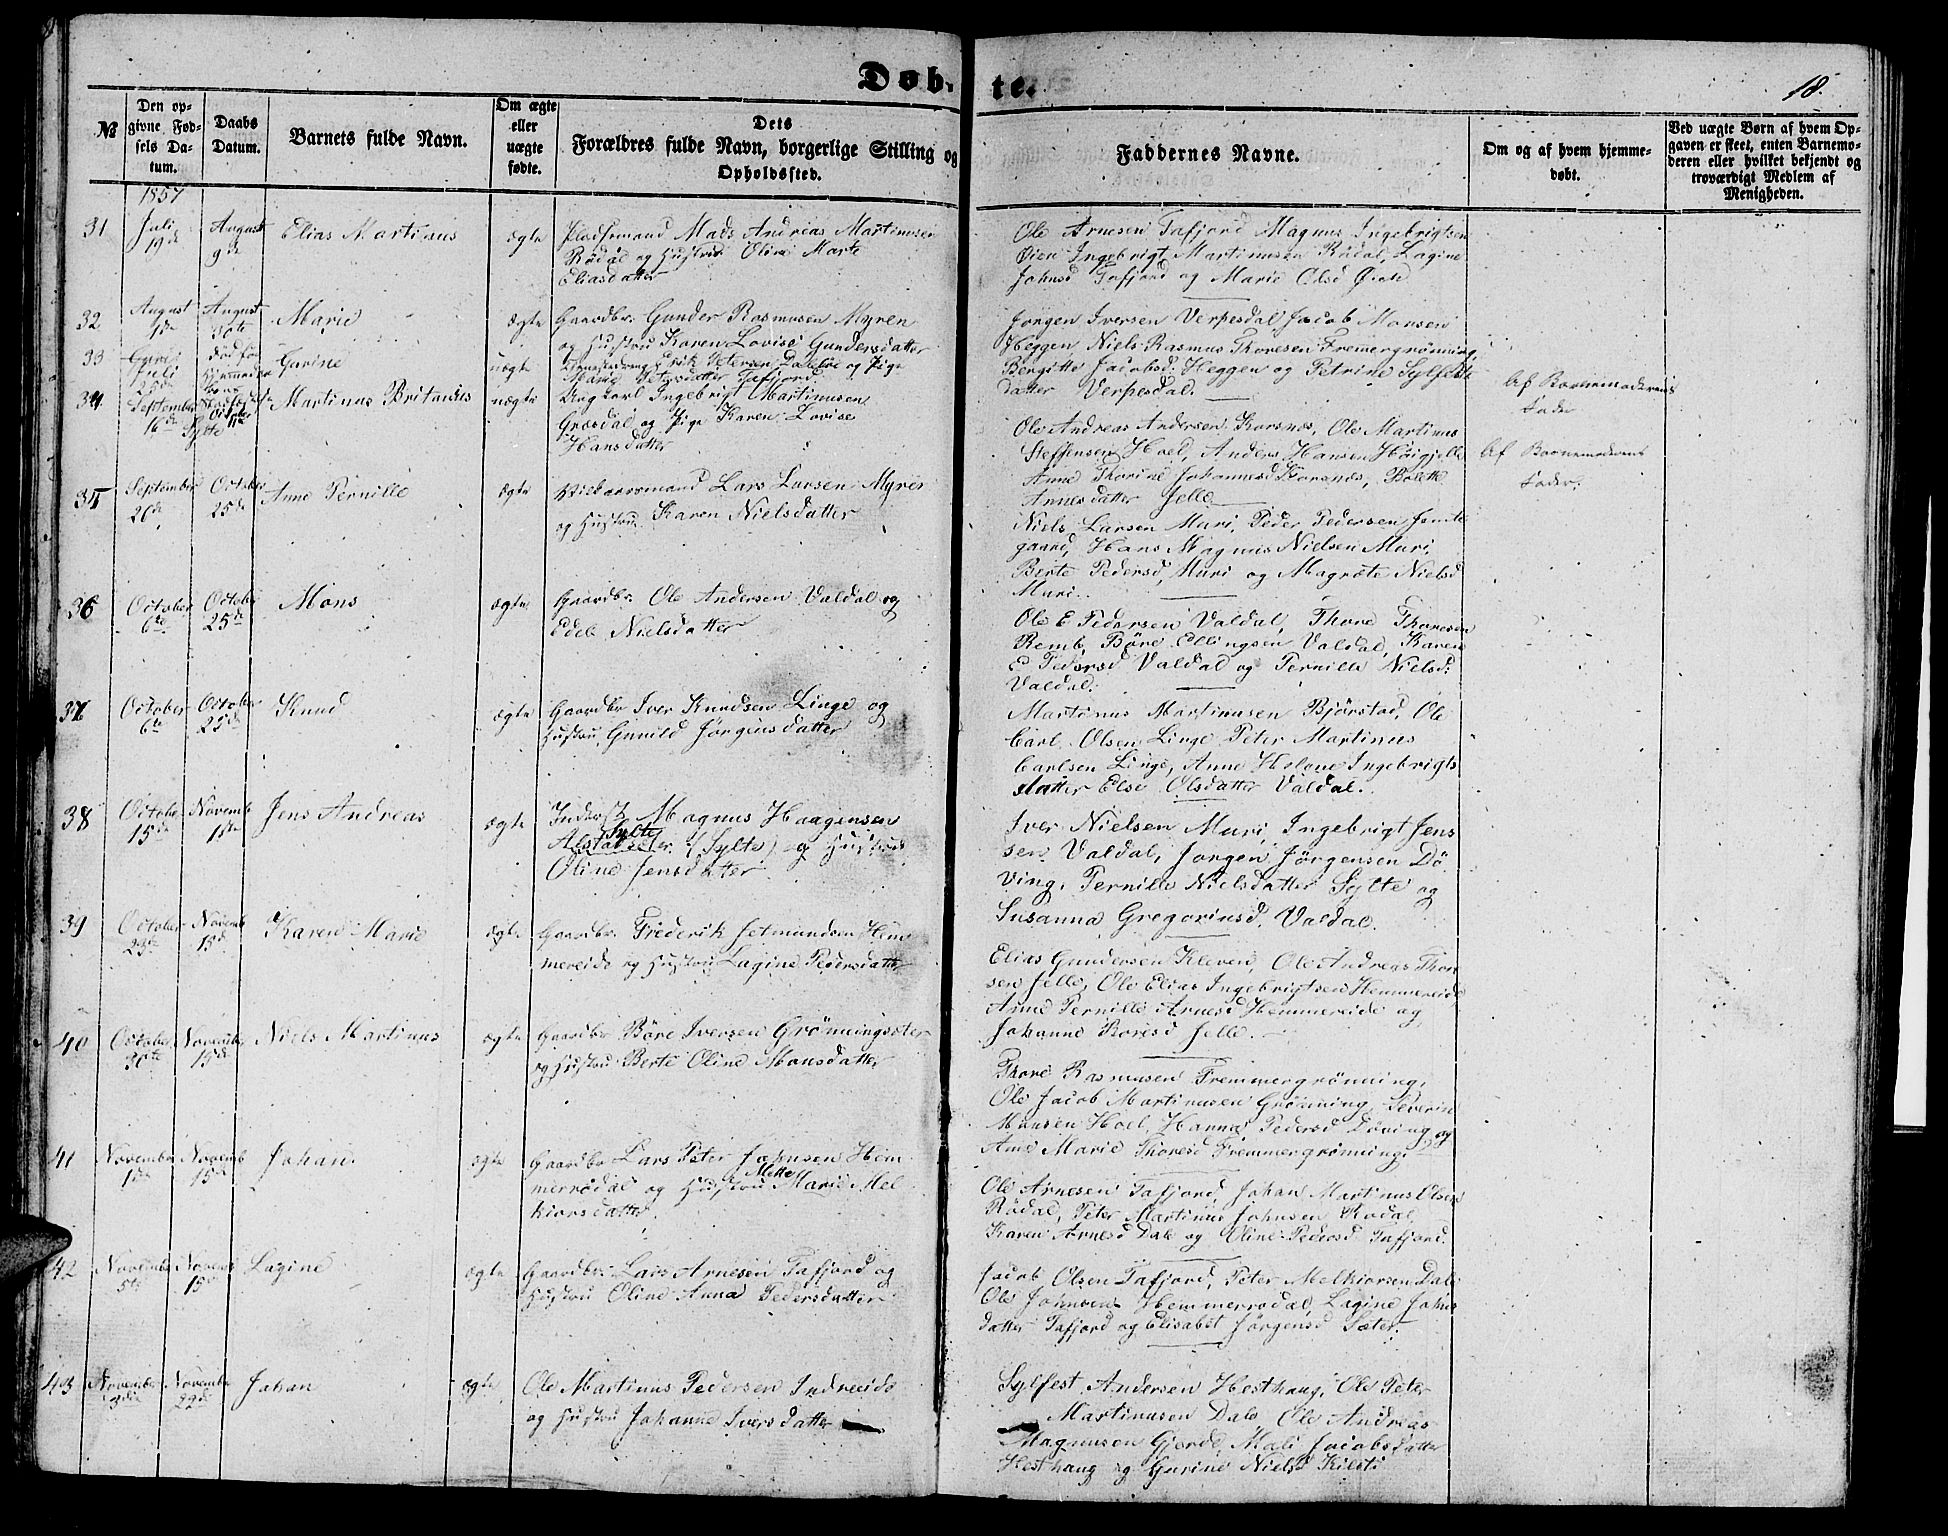 Døb- te. 18.
№
Den op-
givne Fød-
sels Da-
tum.
Daabs
Datum.
Barnets fulde Navn.
Om ægte
eller
uægte
fødte.
Dets
Forældres fulde Navn, borgerlige Stilling og
Opholdssted.
Faddernes Navne.
Om og af hvem hjemme-
døbt.
Ved uægte Børn af hvem Op-
gaven er skeet, enten Barnemo-
deren eller hvilket bekjendt og
troværdigt Medlem af
Menigheden.
1857
31
Juli
19de
August
9de
Elias Martinus
ægte
Pladsmand Mads Andreas Martinusen
Rødal og Hustru Oline Marte
Eliasdatter
Ole Arnesen Tafjord Magnus Ingebrigtsen
Øien Ingebrigt Martinusen Rødal, Lagine
Johnsd Tafjord og Marie Olsd Øien
32
August
August
30te
Marie
ægte
Gaardbr. Gunder Rasmusen Myren
og Hustru Karen Lovise Gundersdatter
Jørgen Iversen Verpesdal Jacob Monsen
Heggen Niels Rasmus Thoresen Fremmergrønning,
Bergitte Jacobsd. Heggen og Petrine Sylfest
datter Verpesdal.
33
Juli
25de
Gurine
uægte
Erik Petersen Dale og Pige
Marie Tafjord
Af Barnemoderens
Fader
34
September
16de
October
11te
Sylte
Martinus Britanus
uægte
Ungkarl Ingebrigt Martinusen
Græsdal og Pige Karen Lovise
Hansdatter
Ole Andreas Andersen Korsnes, Ole Martinus
Steffensen Hoel, Anders Hansen
Anne Thorine Johannesd Korsnes, Bolette
Arnesdatter Jelle
Af Barnemoderens
Fader.
35
September
20de
October
25de
Anne Pernille
ægte
Lars Larsen Myren
og Hustru Karen Nielsdatter
Niels Larsen Muri, Peder Pedersen Jemte
gaard, Hans Magnus Nielsen Muri,
Berte Pedersd. Muri og Magrete Nielsd
Muri.
36
October
6te
October
25de
Mons
ægte
Gaardbr. Ole Andersen Valdal og
Edel Nielsdatter
Ole E Pedersen Valdal, Thore Thoresen
Remb, Børe Edlingsen Valdal, Karen
E Pedersd Valdal og Pernille Nielsd.
Valdal.
37
October
6te
October
25de
Knud
ægte
Gaardbr Iver Knudsen Linge og
Hustru, Gunild Jørgensdatter
Martinus Martinusen Bjørstad, Ole
Carl Olsen Linge, Peter Martinus
Carlsen Linge, Anne Helene Ingebrigts
datter Else Olsdatter Valdal.
38
October
15de
Novemb
1ste
Jens Andreas
ægte
Inderst Magnus Haagensen
Sylte
Alstadseter (Sylte) og Hustru
Oline Jensdatter
Iver Nielsen Muri, Ingebrigt Jens
sen Valdal, Jørgen Jørgensen Dø
ving, Pernille Nielsdatter Sylte og
Susanna Gregoriusd. Valdal.
39
October
23de
Novemb
15de
Karen Marie
ægte
Gaardbr. Frederik Setmundsen Hem
mereide og Hustru Lagine Pedersdatter
Elias Gundersen Kleven, Ole Andreas Thor
sen Jelle, Ole Elias Ingebrigtsen Hemmereide
Anne Pernille Arnesd Hemmereide og
Johanne Koresd Jelle.
40
October
30te
November
15de
Niels Martinus
ægte
Gaardbr Børe Iversen Grønningsæter
og Hustru Berte Oline Monsdatter
Thore Rasmusen Fremmergrønning,
Ole Jacob Martinusen Grønning, Severin
Monsen Hoel, Hanna Pedersd Døving og
Ane Marie Thoresd Fremmergrønning.
41
November
1ste
Novemb
15de
Johan
ægte
Gaardbr Lars Peter Johnsen Hem
Mette
merrødal og Hustru Marie Mel
kiorsdatter.
Ole Arnesen Tafjord, Johan Martinus Olsen
Rødal, Peter Martinus Johnsen Rødal,
Karen Arnesd Dale og Oline Pedersd Tafjord.
42
Novemb
5te
Novemb
15de
Lagine
ægte
Gaardbr. Lars Arnesen Tafjord og
Hustru Oline Anna Pedersdatter
Jacob Olsen Tafjord, Peter Melkiorsen Dale
Ole Johnsen Hemmerrødal, Lagine Johns
datter Tafjord og Elisabet Jørgensd Sæter.
43
November
3die
Novembr
22de
Johan
ægte
Ole Martinus Pedersen Indreeide
og Hustru Johanne Iversdatter
Sylfest Andersen Hesthaug, Ole Peter
Martinusen Dale, Ole Andreas
Magnusen Gjerde, Mali Jacobsdatter
Hesthaug og Gurine Nielsd Kilsti